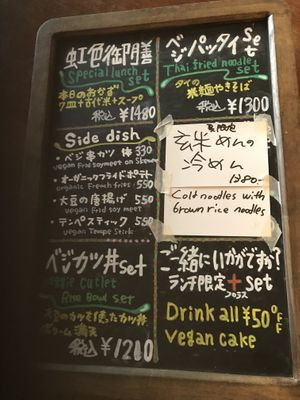 虹包御膳
Special lunch set
本日のおかず
7皿+古代米+スープ
税込 ¥1480
ベジパッタイ set
Thai fried noodle set
タイの
米麺やきそば
税込 ¥1300
Side dish
・ベジ串カツ 1本 330
vegan Fried soymeet on Skewer
・オーガニックフライドポテト
organic French fries 550
・大豆の唐揚げ 550
vegan Frid soy meet
・テンペスティック 550
vegan Tempe Stick
玄米めんの
冷めん
1280-
Cold noodles with
brown rice noodles
ベジカツ丼 set
veggie Cutlet
Rice Bowl set
大豆のカツを使ったカツ丼
ボリューム満天
税込 ¥1210
ご一緒にいかがですか?
ランチ限定 + set
プラス
Drink all ¥50 OFF
Vegan cake